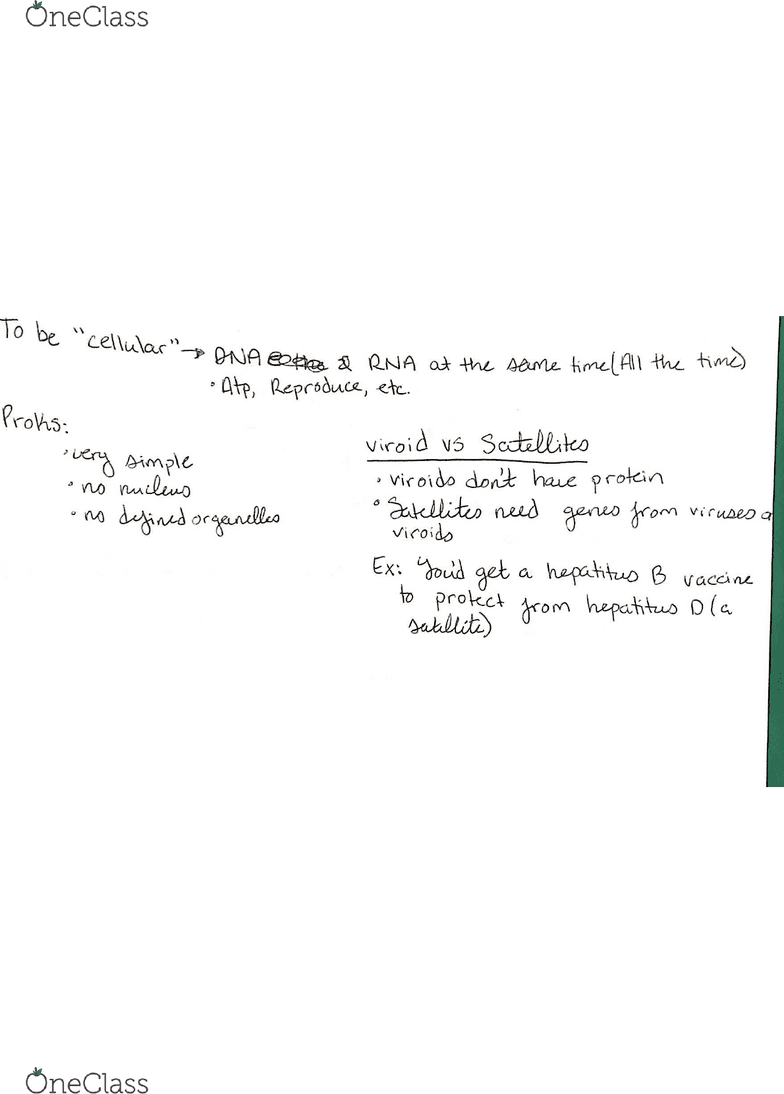 OneClass
To be "cellular" → DNA & RNA at the same time (All the time)
• Atp, Reproduce, etc.
Proks:
• very simple
• no nucleus
• no defined organelles
viroid vs Satellites
• viroids don't have protein
• Satellites need genes from viruses
viroids
Ex: You'd get a hepatitus B vaccine
to protect from hepatitus D (a
satellite)
OneClass